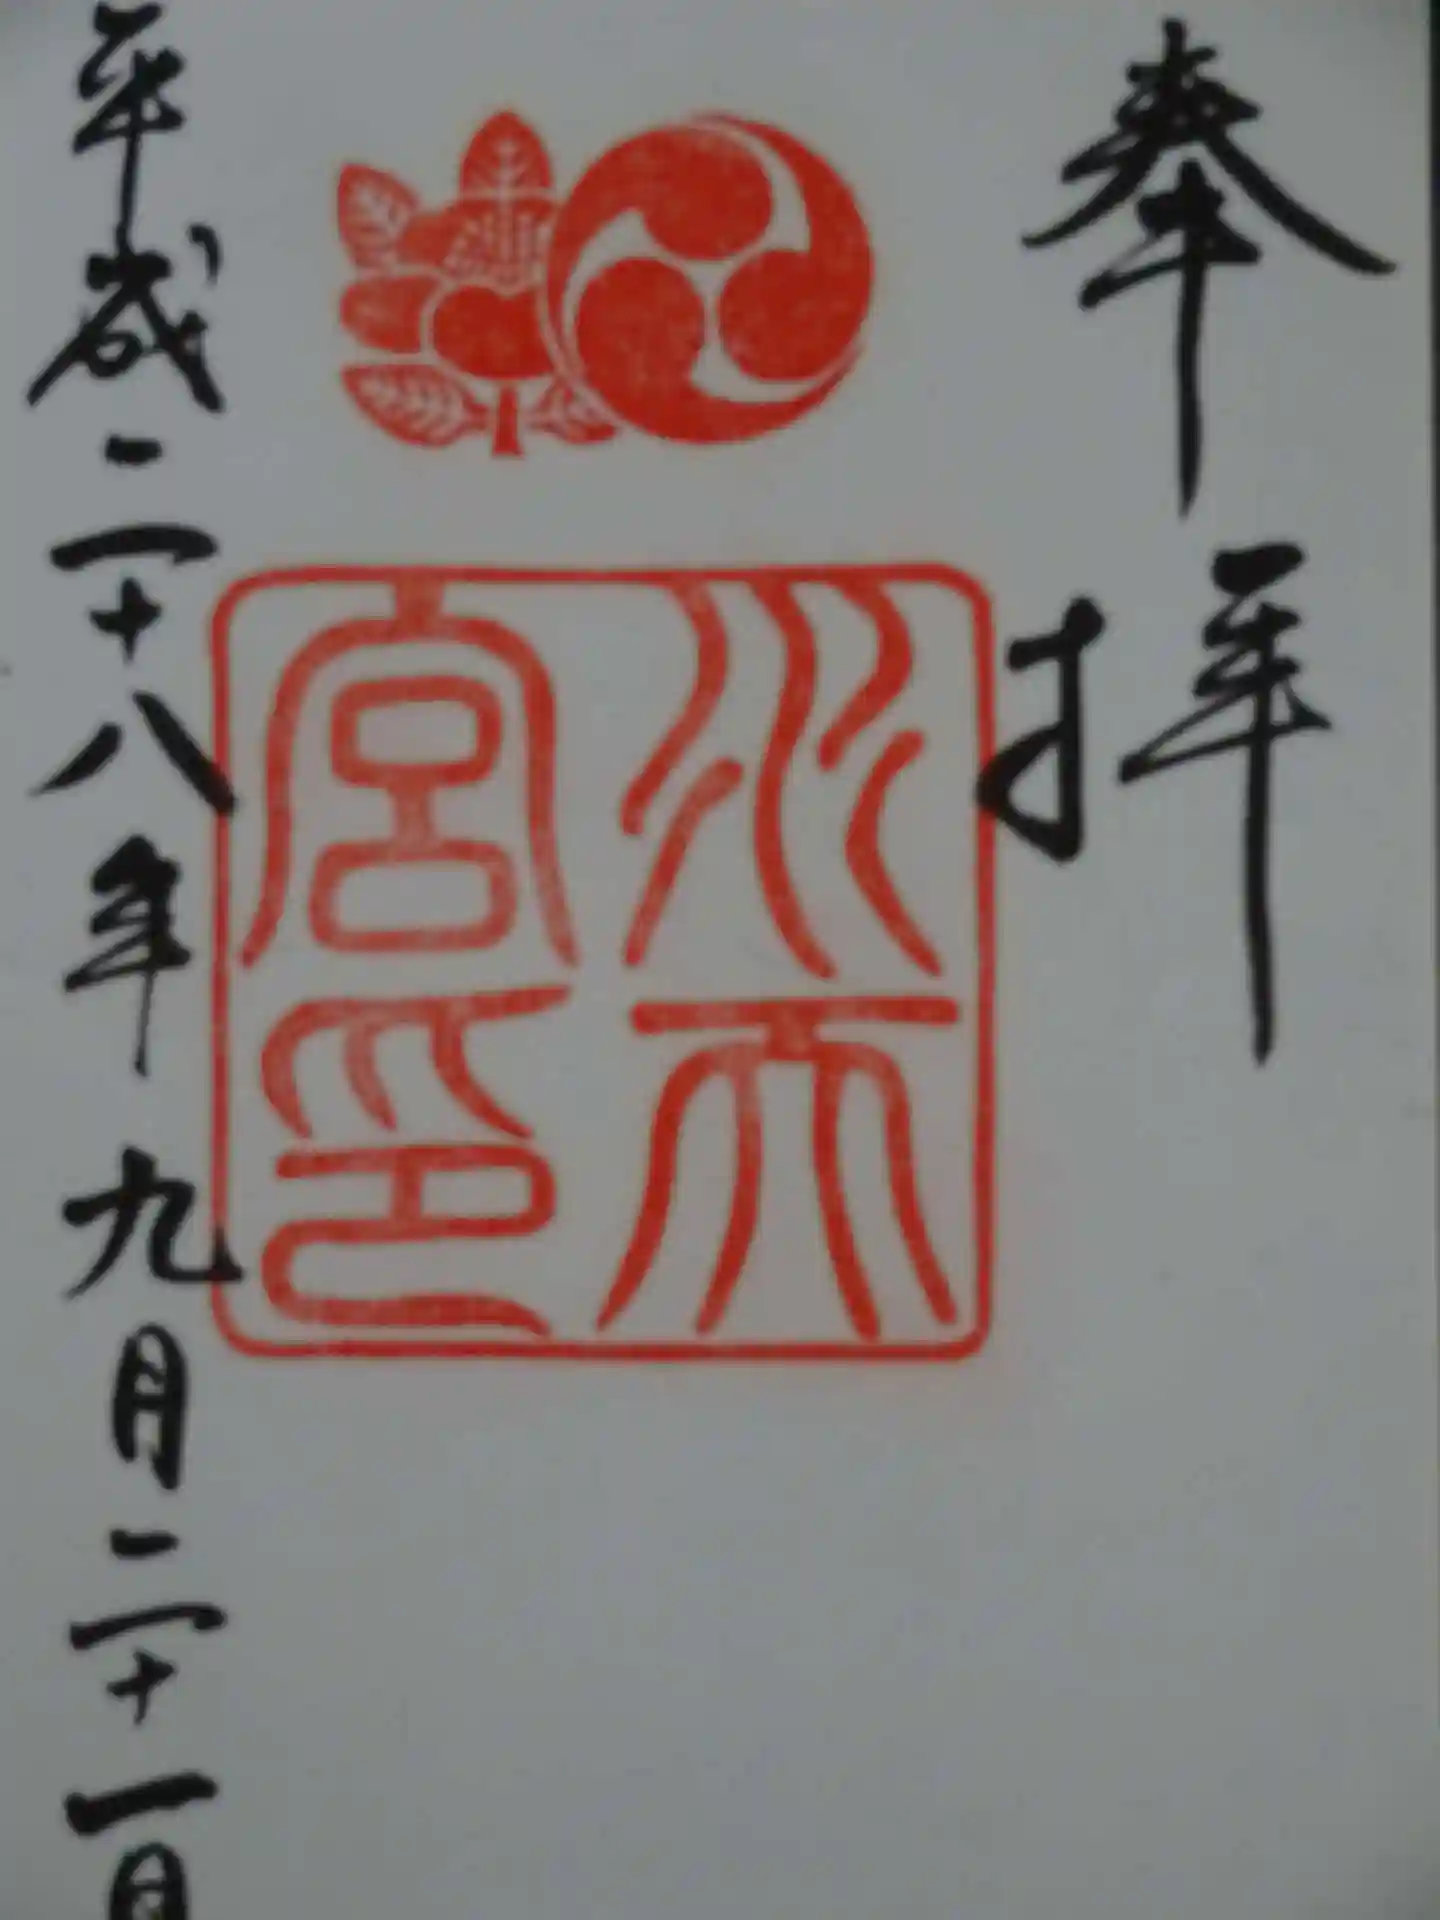 奉拝
水天
宮印
平成二十八年九月二十一日